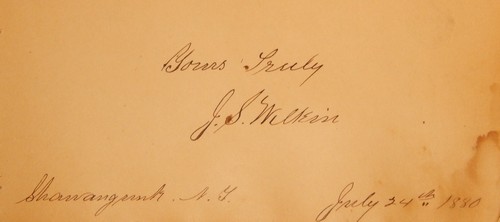 Yours Truly
J. S. Wilkin
Shawangunk. N. Y. July 24th 1880